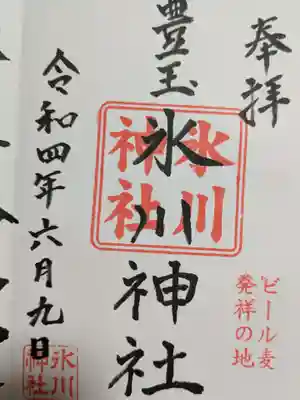 奉拝
ビール麦
発祥の地
豊玉氷川神社
氷川
神社
令和四年六月九日
氷川
神社